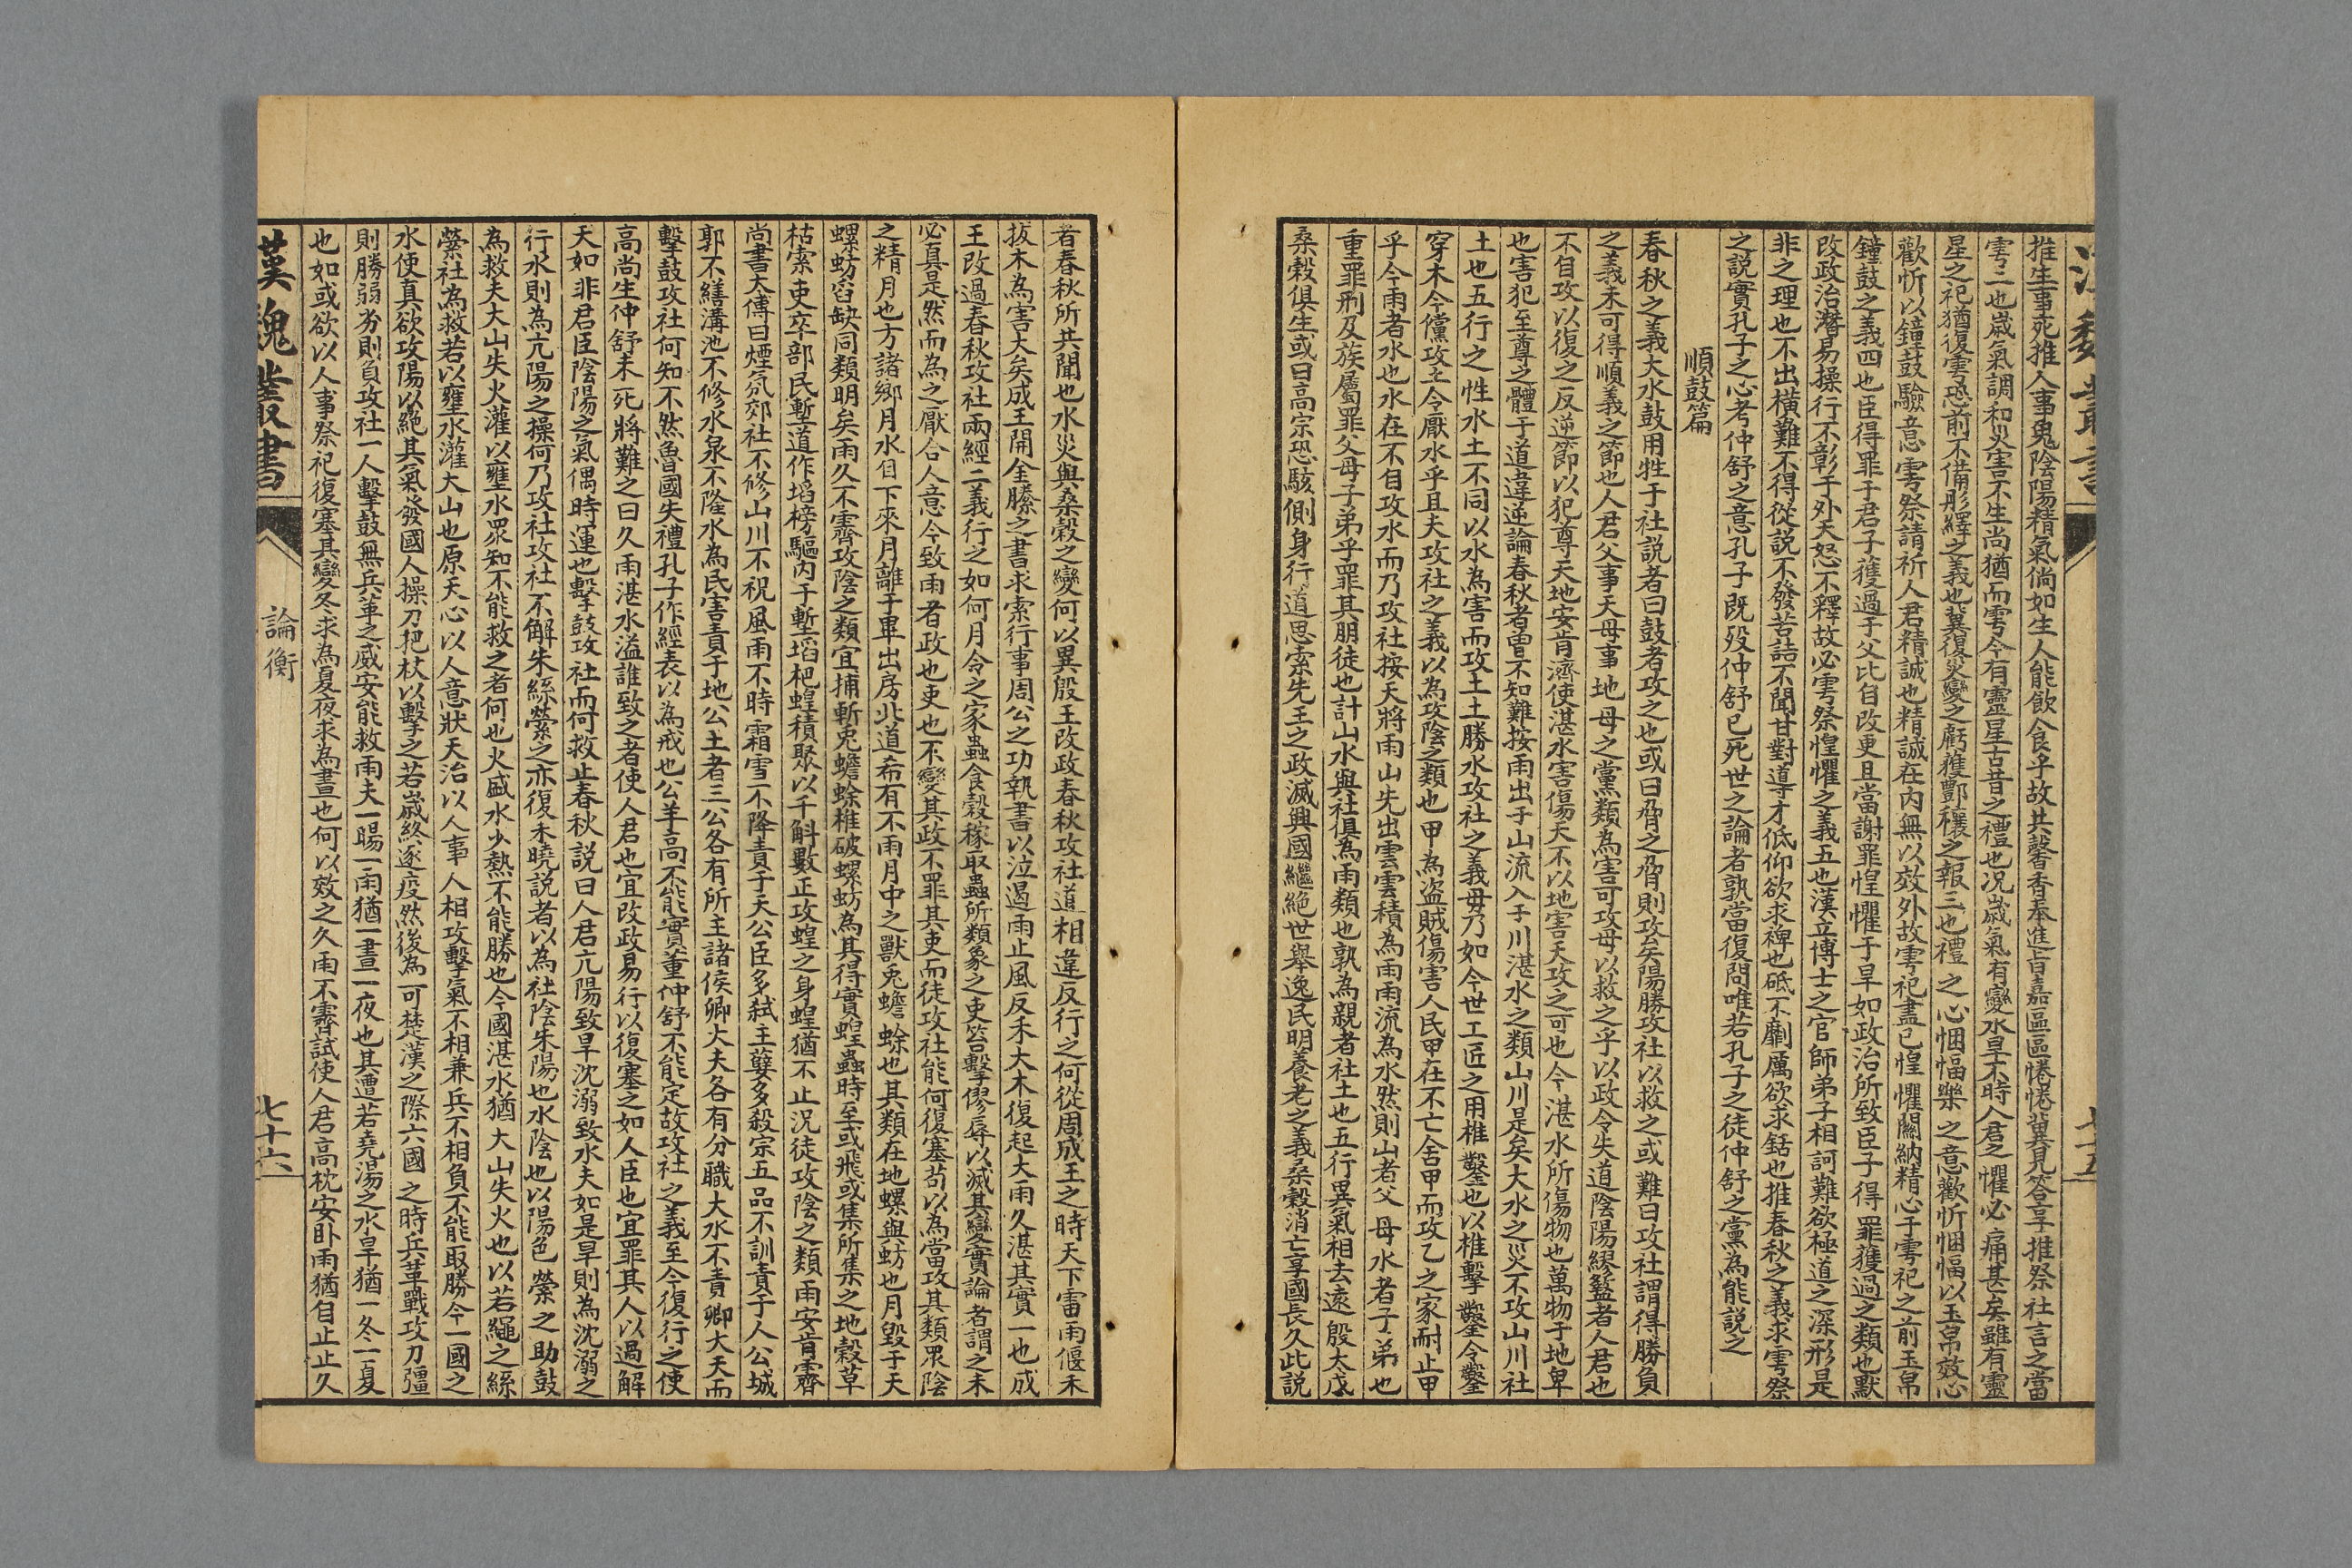 推生事死推人事鬼陰陽精氣倘如生人能飲食乎故共馨香奉進旨嘉區區惓惓冀見答享推祭社言之當
雩二也歲氣調和災害不生尚猶而雩今有靈星古昔之禮也况歲氣有變水旱不時人君之懼必痛甚矣雖有靈
星之祀猶復雩恐前不備肜繹之義也冀復災變之虧獲酆穰之報三也禮之心悃愊樂之意歡忻悃愊以玉帛效心
歡忻以鐘鼓驗意雩祭請祈人君精誠也精誠在内無以效外故雩祀盡已惶懼關納精心于雩祀之前玉帛
鐘鼓之義四也臣得罪于君子獲過于父比自改更且當謝罪惶懼于旱如政治所致臣子得罪獲過之類也默
改政治潛易操行不彰于外天怒不釋故必雩祭惶懼之義五也漢立博士之官師弟子相訶難欲極道之深形是
非之理也不出横難不得從說不發苦詰不聞甘對導才低仰欲求裨也砥不劘厲欲求銛也推春秋之義求雩祭
之說實孔子之心考仲舒之意孔子既殁仲舒已死世之論者孰當復問唯若孔子之徒仲舒之黨為能說之
順鼓篇
春秋之義大水鼓用牲于社說者曰鼓者攻之也或曰脅之脅則攻矣陽勝攻社以救之或難曰攻社謂得勝負
之義未可得順義之節也人君父事天母事地母之黨類為害可攻母以救之乎以政令失道陰陽繆盭者人君也
不自攻以復之反逆節以犯尊天地安肯濟使湛水害傷天不以地害天攻之可也今湛水所傷物也萬物于地卑
也害犯至尊之體于道違逆論春秋者曾不知難按雨出于山流入于川湛水之類山川是矣大水之災不攻山川社
土也五行之性水土不同以水為害而攻土土勝水攻社之義毋乃如今世工匠之用椎鑿也以椎擊鑿令鑿
穿木今儻攻土令厭水乎且夫攻社之義以為攻陰之類也甲為盜賊傷害人民甲在不亡舍甲而攻乙之家耐止甲
乎今雨者水也水在不自攻水而乃攻社按天將雨山先出雲雲積為雨雨流為水然則山者父母水者子弟也
重罪刑及族屬罪父母子弟乎罪其朋徒也計山水與社俱為雨類也孰為親者社土也五行異氣相去遠殷太戊
桑榖俱生或曰高宗恐駭側身行道思索先王之政滅興國繼絕世舉逸民明養老之義桑榖消亡享國長久此說
者春秋所共聞也水災與桑榖之變何以異殷王改政春秋攻社道相違反行之何從周成王之時天下雷雨偃禾
拔木為害大矣成王開金縢之書求索行事周公之功執書以泣遏雨止風反禾大木復起大雨久湛其實一也成
王改過春秋攻社兩經二義行之如何月令之家蟲食穀稼取蟲所類象之吏笞擊僇辱以滅其變實論者謂之未
必真是然而為之厭合人意今致雨者政也吏也不變其政不罪其吏而徒攻社能何復塞苟以為當攻其類眾陰
之精月也方諸鄉月水自下來月離于畢出房北道希有不雨月中之獸兎蟾蜍也其類在地螺與蚄也月毀于天
螺蚄舀缺同類明矣雨久不霽攻陰之類宜捕斬兎蟾蜍椎破螺蚄為其得實蝗蟲時至或飛或集所集之地穀草
枯索吏卒部民塹道作埳榜驅内于塹埳杷蝗積聚以千斛數正攻蝗之身蝗猶不止况徒攻陰之類雨安肯霽
尚書大傳曰煙氛郊社不修山川不祝風雨不時霜雪不降責于天公臣多弑主孽多殺宗五品不訓責于人公城
郭不繕溝池不修水泉不隆水為民害責于地公土者三公各有所主諸侯卿大夫各有分職大水不責卿大夫而
擊鼓攻社何知不然魯國失禮孔子作經表以為戒也公羊高不能實董仲舒不能定故攻社之義至今復行之使
高尚生仲舒未死將難之曰久雨湛水溢誰致之者使人君也宜改政易行以復塞之如人臣也宜罪其人以過解
天如非君臣陰陽之氣偶時運也擊鼓攻社而何救止春秋說曰人君亢陽致旱沈溺致水夫如是旱則為沈溺之
行水則為亢陽之操何乃攻社攻社不解朱絲縈之亦復未曉說者以為社陰朱陽也水陰也以陽色縈之助鼓
為救夫大山失火灌以壅水眾知不能救之者何也火盛水少熱不能勝也今國湛水猶大山失火也以若繩之絲
縈社為救若以壅水灌大山也原天心以人意狀天治以人事人相攻擊氣不相兼兵不相負不能取勝今一國之
水使真欲攻陽以絕其氣發國人操刀把杖以擊之若歲終逐疫然後為可楚漢之際六國之時兵革戰攻力彊
則勝弱劣則負攻社一人擊鼓無兵革之威安能救雨夫一暘一雨猶一晝一夜也其遭若堯湯之水旱猶一冬一夏
也如或欲以人事祭祀復塞其變冬求為夏夜求為晝也何以效之久雨不霽試使人君高枕安卧雨猶自止止久
漢魏叢書
論衡
七十六